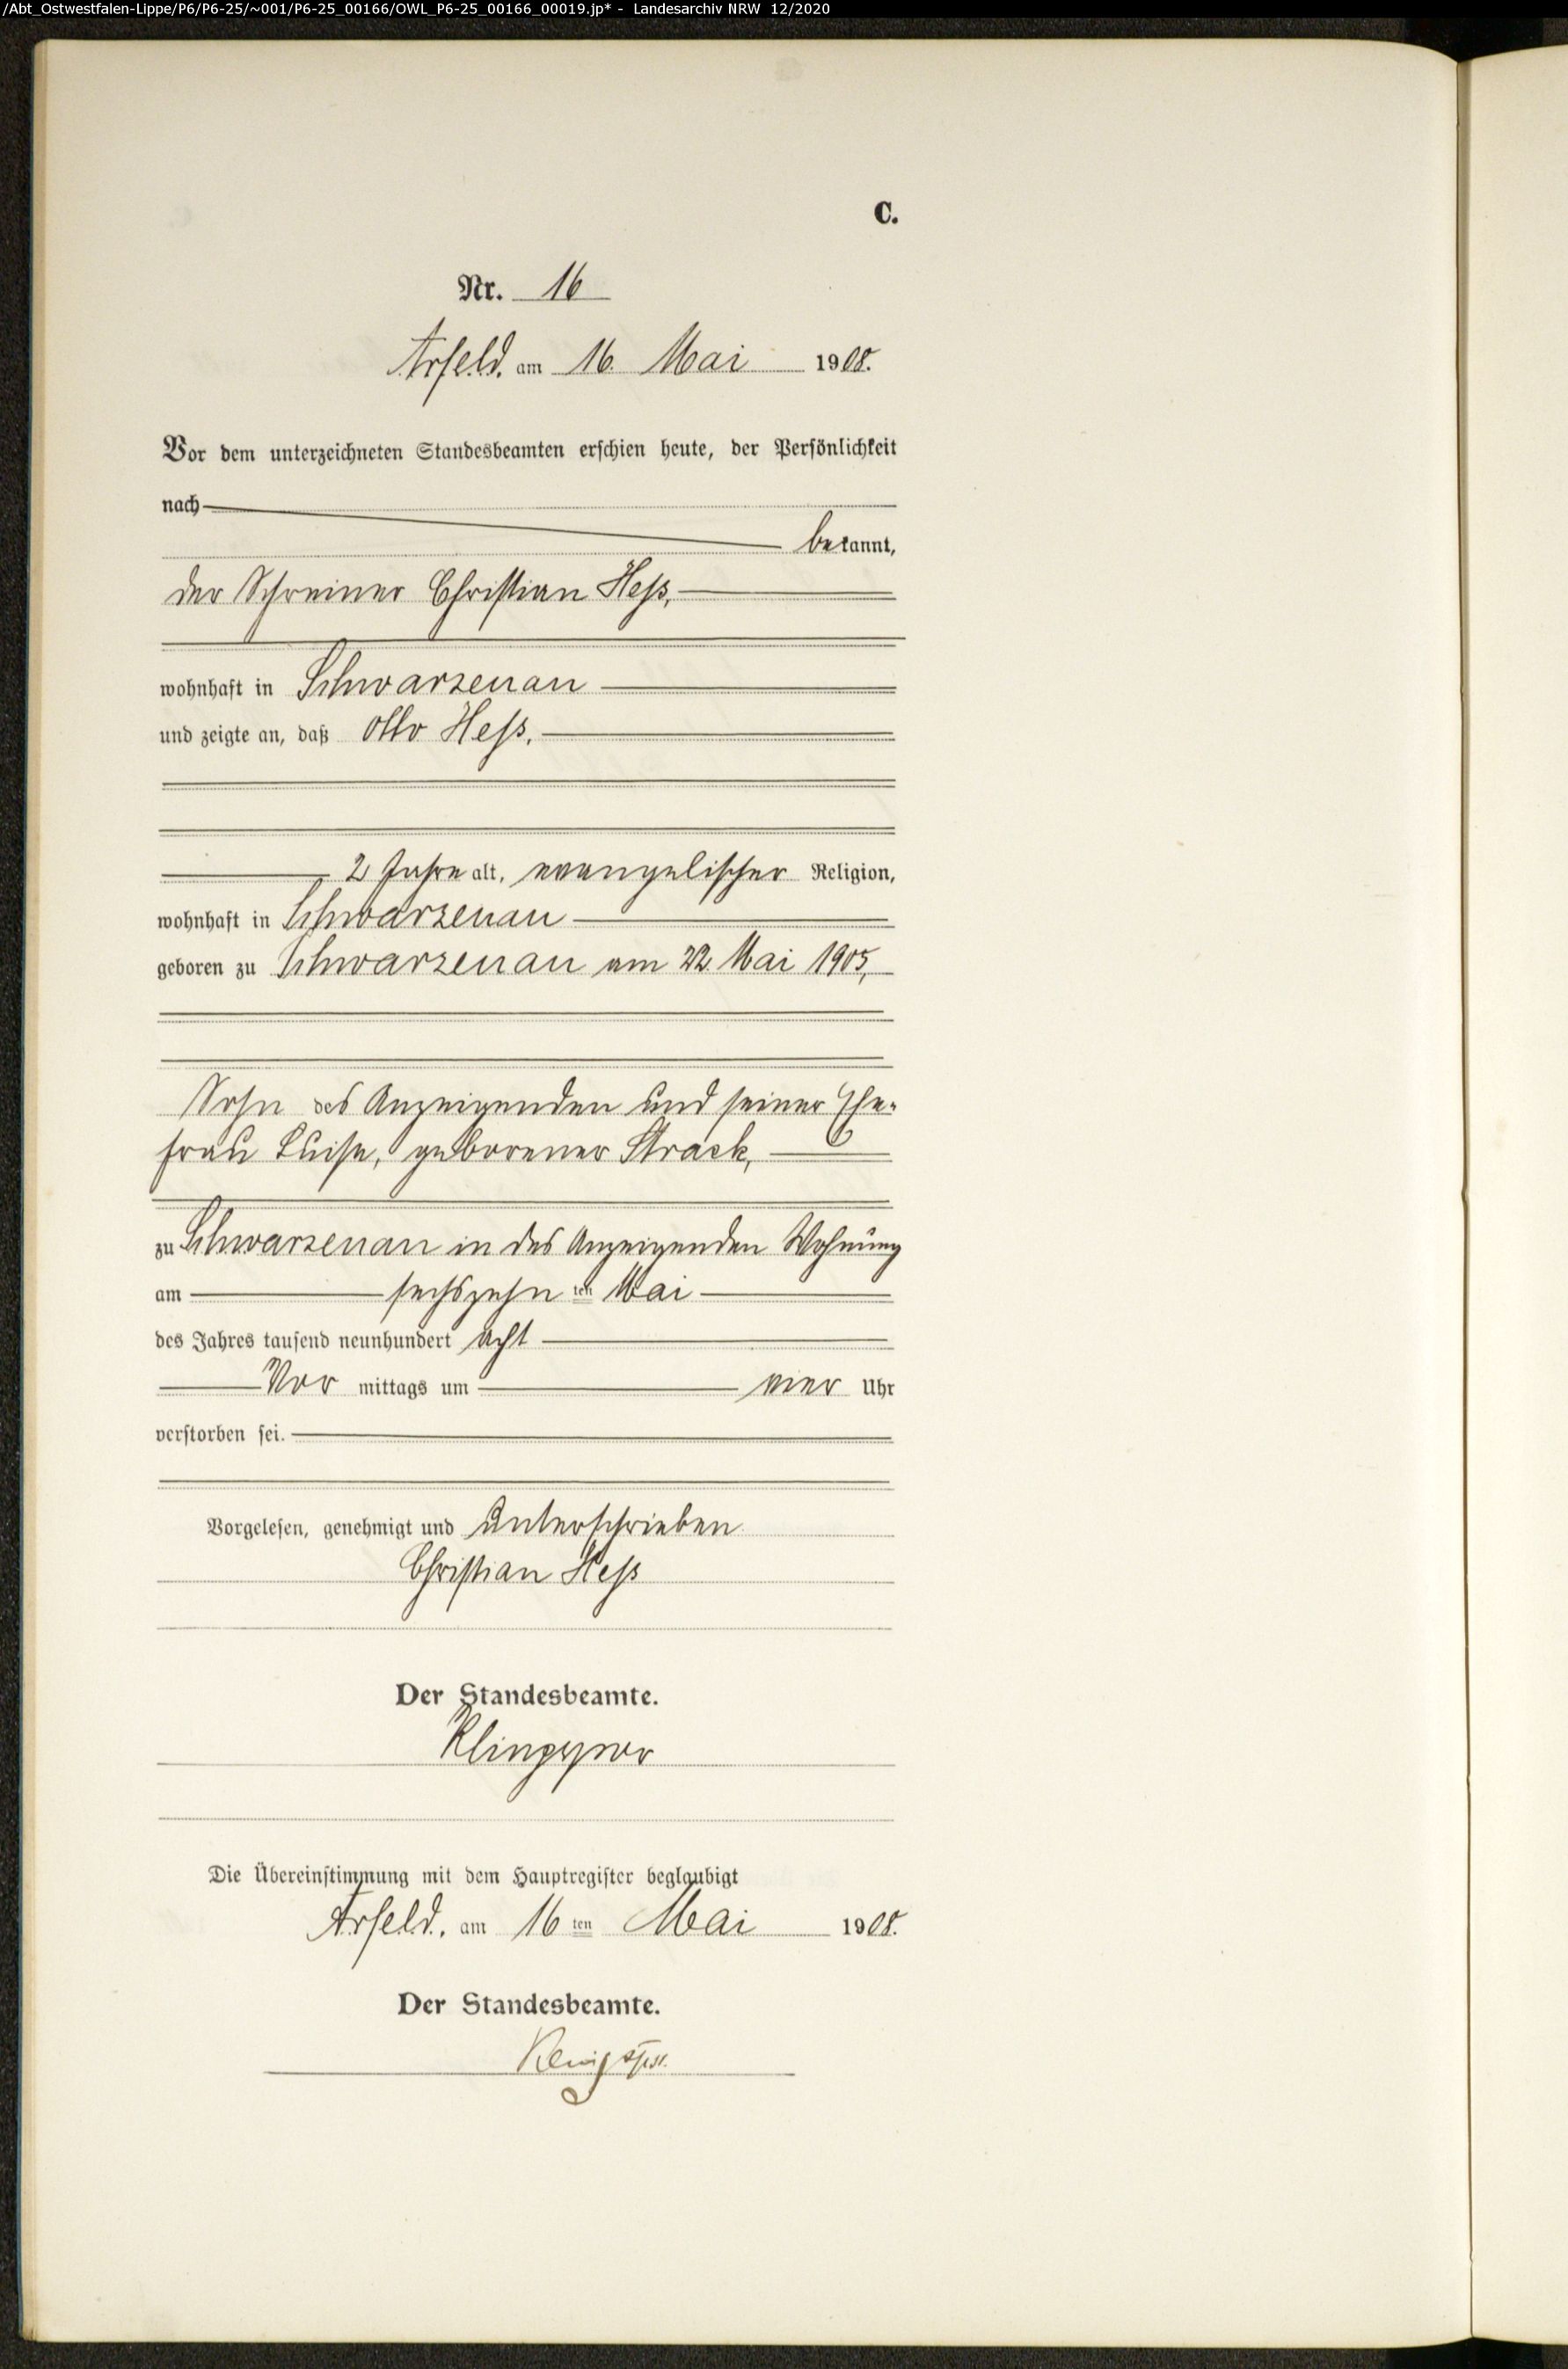 /Abt_Ostwestfalen-Lippe/P6/P6-25/~001/P6-25_00166/OWL_P6-25_00166_00019.jp* - Landesarchiv NRW 12/2020
C.
Nr. 16
Arfeld, am 16. Mai 1908.
Vor dem unterzeichneten Standesbeamten erschien heute, der Persönlichkeit
nach
bekannt,
der Schreiner Christian Heß,
wohnhaft in Schwarzenau
und zeigte an, daß Otto Heß,
2 Jahre alt, evangelischer Religion,
wohnhaft in Schwarzenau
geboren zu Schwarzenau am 22. Mai 1905,
Sohn des Anzeigenden und seiner Ehe-
frau Luise, geborener Strack,
zu Schwarzenau in des Anzeigenden Wohnung
am sechszehn ten Mai
des Jahres tausend neunhundert acht
Vor mittags um vier Uhr
verstorben sei.
Vorgelesen, genehmigt und unterschrieben
Christian Heß
Der Standesbeamte.
Die Übereinstimmung mit dem Hauptregister beglaubigt
Arfeld, am 16 ten Mai 1908.
Der Standesbeamte.